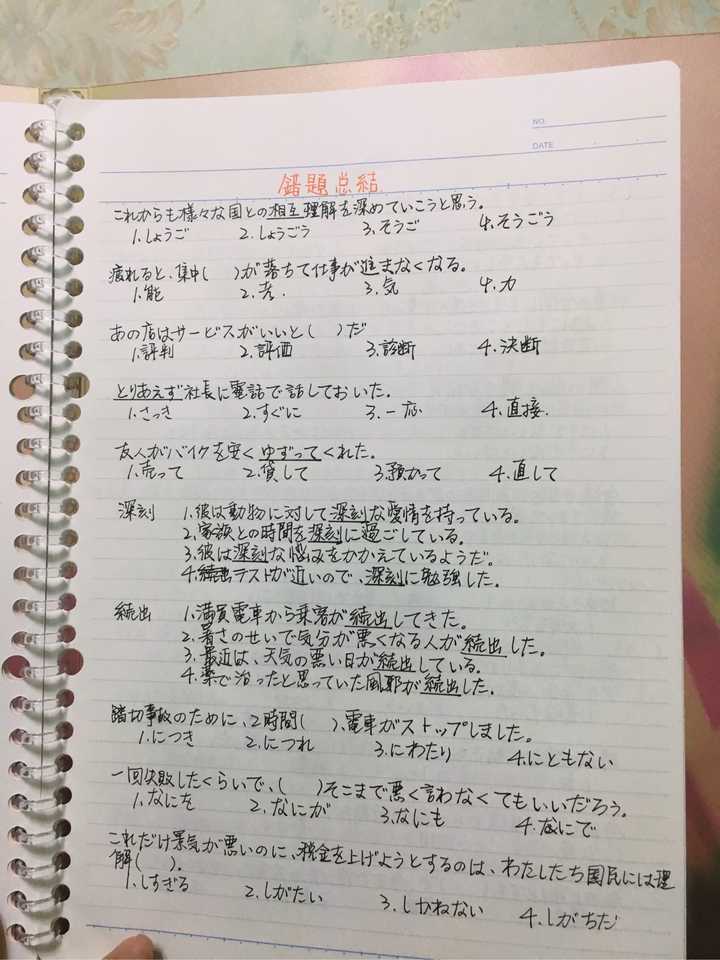 NO.
DATE
錯題总结
これからも様々な国との相互理解を深めていこうと思う。
1.しょうご 2.しょうごう 3.そうご 4.そうごう
疲れると、集中( )が落ちて仕事が進まなくなる。
1.能 2.考. 3.気 4.力
あの店はサービスがいいと( )だ
1.評判 2.評価 3.診断 4.決断
とりあえず社長に電話で話しておいた。
1.さっき 2.すぐに 3.一応 4.直接.
友人がバイクを安くゆずってくれた。
1.売って 2.貸して 3.預かって 4.直して
深刻 1.彼は動物に対して深刻な愛情を持っている。
2.家族との時間を深刻に過ごしている。
3.彼は深刻な悩みをかかえているようだ。
4.テストが近いので、深刻に勉強した。
続出 1.満員電車から乗客が続出してきた。
2.暑さのせいで気分が悪くなる人が続出した。
3.最近は、天気の悪い日が続出している。
4.薬で治ったと思っていた風邪が続出した.
踏切事故のために、2時間( )、電車がストップしました。
1.につき 2.につれ 3.にわたり 4.にともない
一回失敗したくらいで、( )そこまで悪く言わなくてもいいだろう。
1.なにを 2.なにが 3.なにも 4.なにで
これだけ景気が悪いのに、税金を上げようとするのは、わたしたち国民には理
解( ).
1.しすぎる 2.しがたい 3.しかねない 4.しがちだ